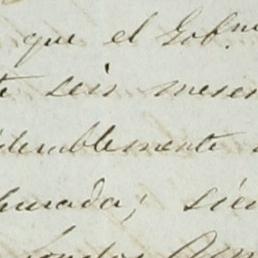 que el Gob.no
te seis meses
iderablemente
hurada; sien